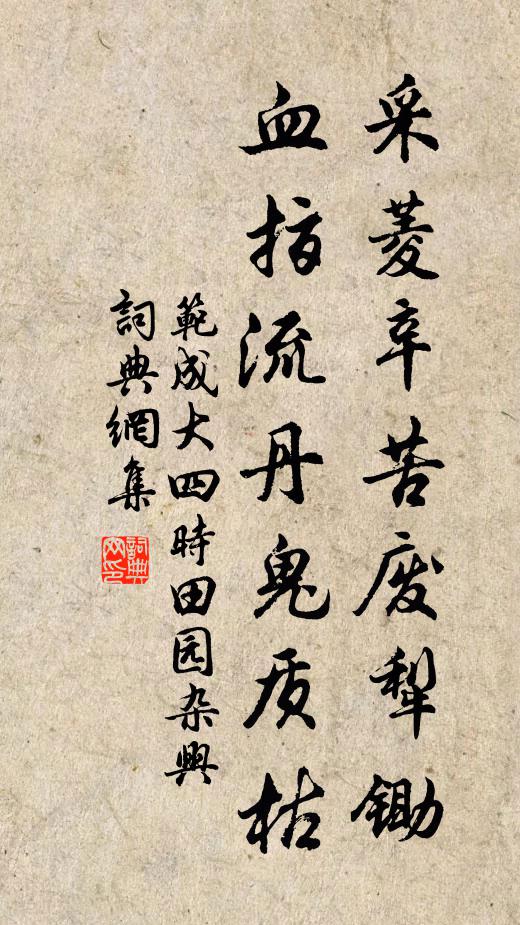 采菱辛苦废犁锄
血指流丹鬼质枯
範成大四時田园杂興
詞典網集
詞典网印